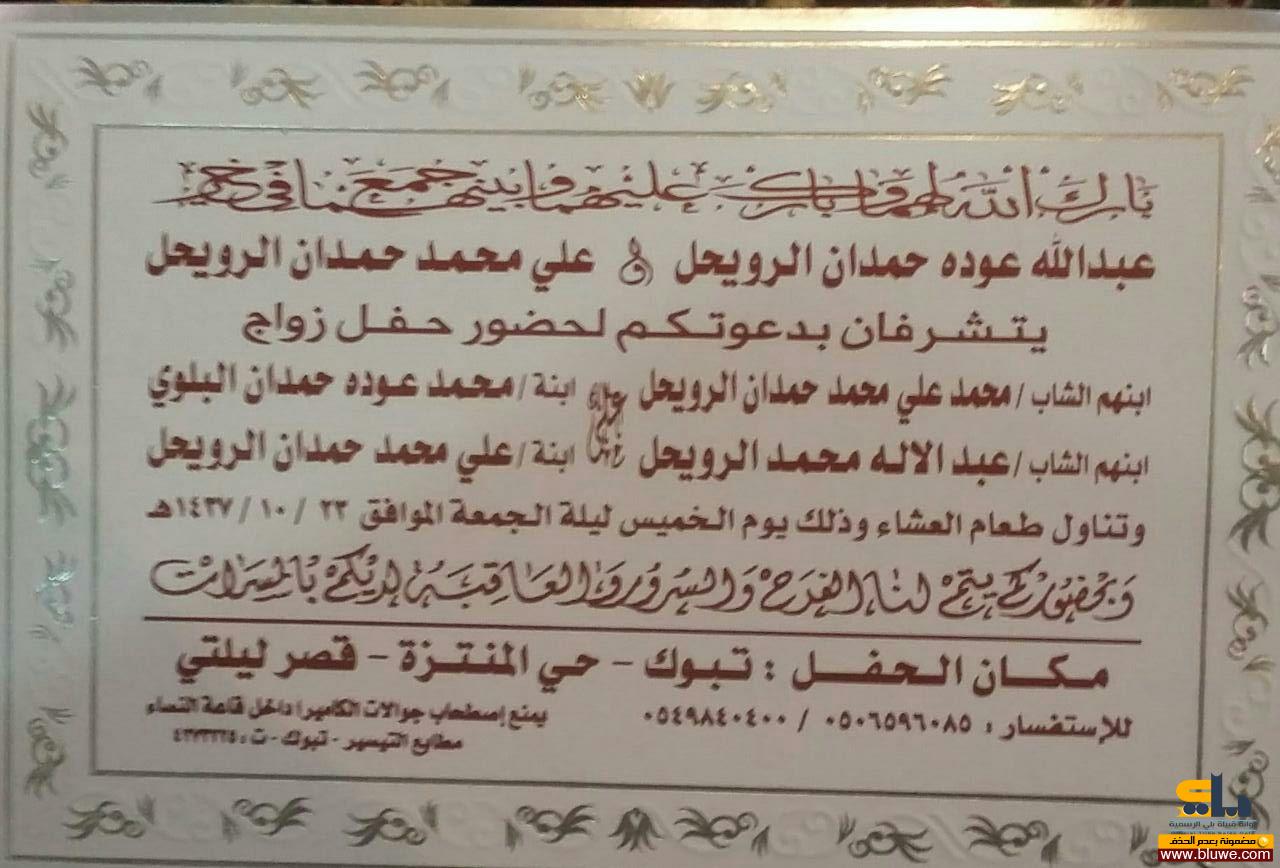 بارك الله لهما وبارك عليهما وجمع بينهما في خير
عبدالله عوده حمدان الرويحل و علي محمد حمدان الرويحل
يتشرفان بدعوتكم لحضور حفل زواج
ابنهم الشاب / محمد علي محمد حمدان الرويحل على ابنة / محمد عوده حمدان البلوي
ابنهم الشاب / عبد الاله محمد الرويحل ابنة / علي محمد حمدان الرويحل
وتناول طعام العشاء وذلك يوم الخميس ليلة الجمعة الموافق ٢٣ / ١٠ / ١٤٣٧هـ
وبحضوركم يتم لنا الفرح والسرور والعاقبة لديكم بالمسرات
مكان الحفل : تبوك - حي المنتزة - قصر ليلتي
للإستفسار : ٠٥٠٦٥٩٦٠٨٥ / ٠٥٤٩٨٤٠٤٠٠
يمنع إصطحاب جوالات الكاميرا داخل قاعة النساء
مطابع التيسير - تبوك - ت :
بلي
بوابة قبيلة بلي الرسمية
مضمونة بعدم الحذف
www.bluwe.com